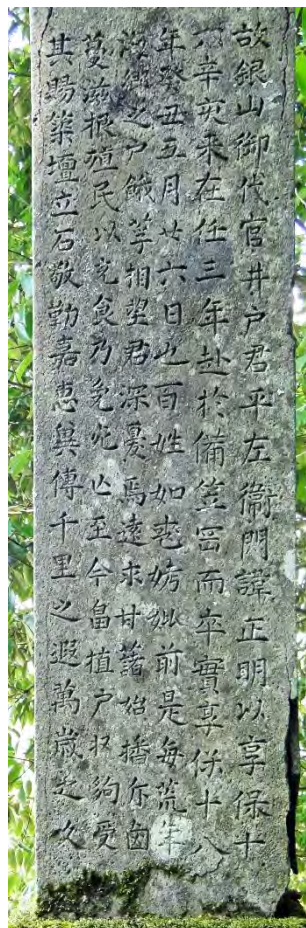 故銀山御代官井戸君平左衞門諱正明以享保十
六辛亥来在任三年赴於備笠岡而卒實享保十八
年癸丑五月廿六日也百姓如喪妣前是毎荒年
海郷之戸餓莩相望君深憂焉遠求甘藷始播尓鹵
蔓滋根殖民以充食乃免死亡至今畠植戸収夠受
其賜築壇立石敬勒嘉恵與傳千里之遐萬歳之久